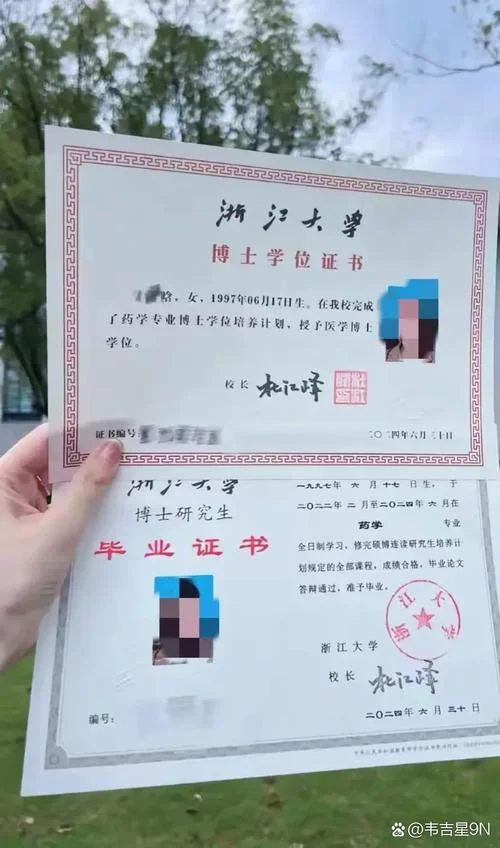 浙江大学
博士学位证书
晗，女，1997年06月17日生。在我校完成
了药学专业博士学位培养计划，授予医学博士
学位。
校长 杜江峰
证书编号
二〇二四年六月三十日
浙江大学
博士研究生
毕业证书
编号：
一九九七年 六 月 十七 日生，于
二〇二二年 二 月至二〇二四年 六 月在
药学 专业
全日制学习，修完硕博连读研究生培养计
划规定的全部课程，成绩合格，毕业论文
答辩通过，准予毕业。
浙江大学
浙江大学
校长 杜江峰
二〇二四年 六 月 三十 日
@韦吉星9N